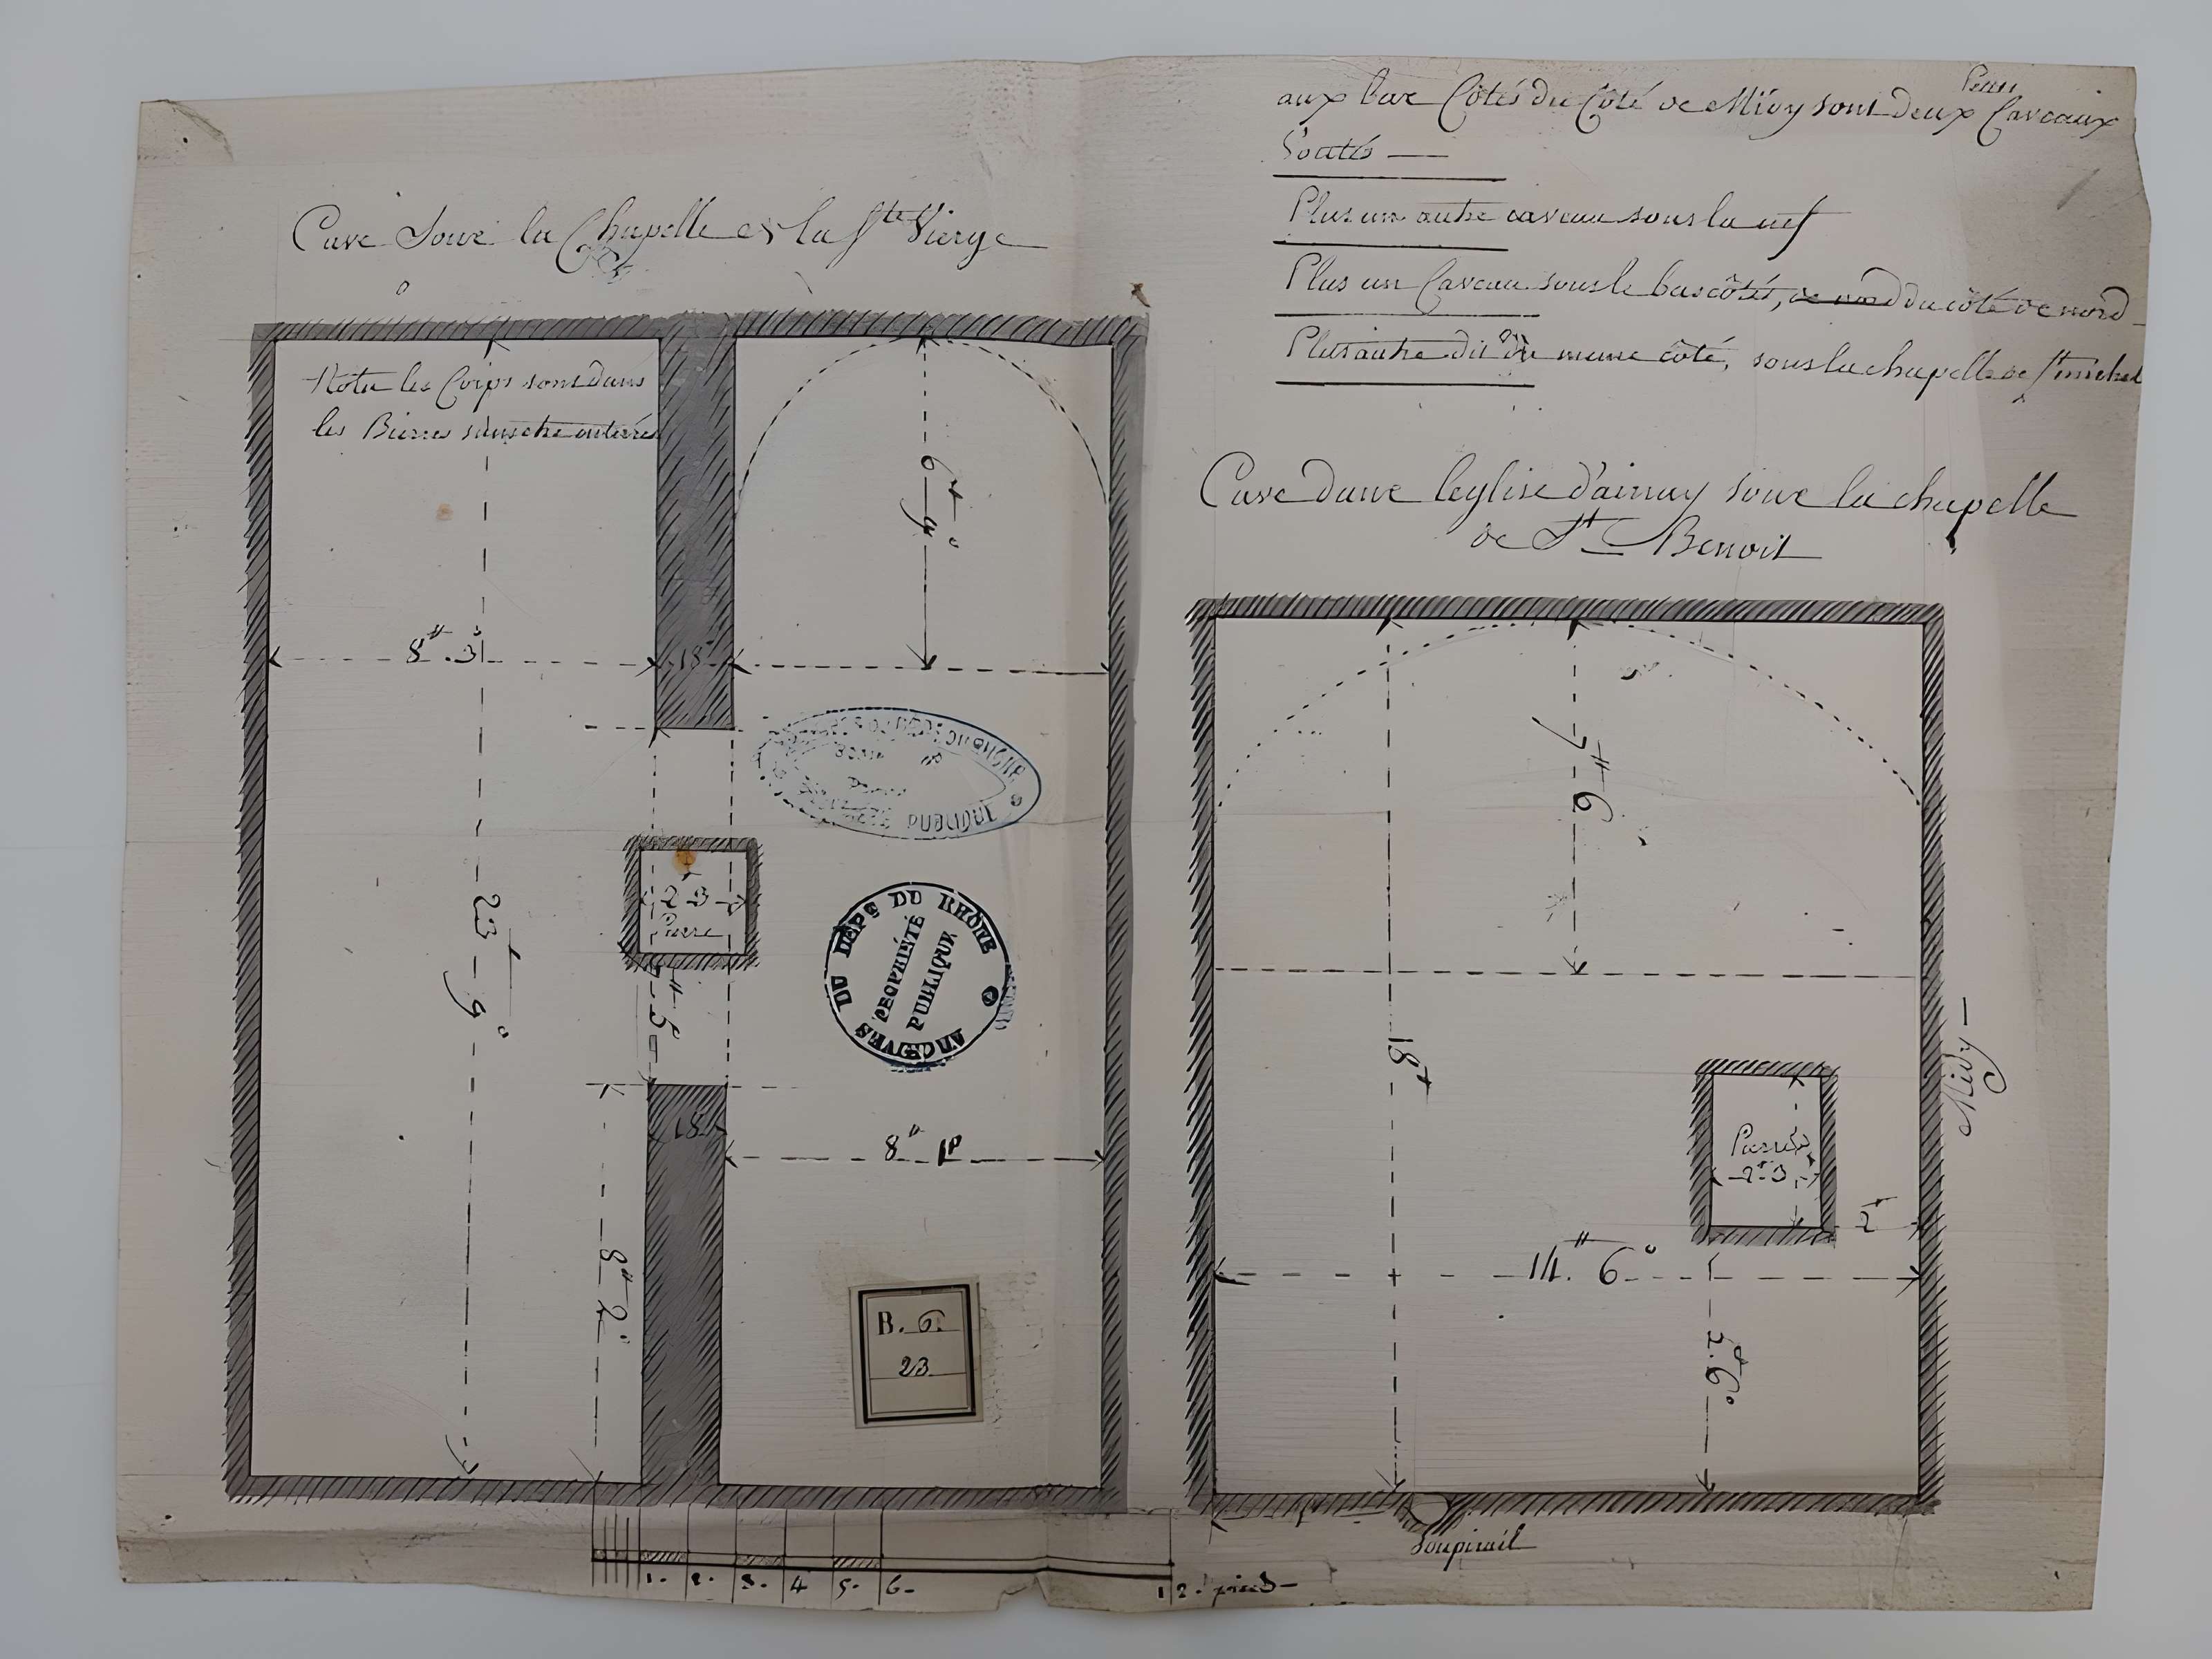 Cave Sous la Chapelle de la Ste Vierge
Notta les Corps sont dans
les Bierres sans etre enterrés
6 - 9°
8" . 3°
18°
23 - 9°
2 3
Pierre
5
18
8" 1P
8" 2°
ARCHIVES DU DÉPT DU RHÔNE
PROPRIÉTÉ
PUBLIQUE
PUBLIQUE
B. 6.
23
1. 2. 3. 4 5. 6. 12. pieds
Petits
aux bas Côtés du Côté de Midy sont deux Caveaux
Voutés
Plus un autre caveau sous la nef
Plus un Caveau sous le bas côtés, de nord du côté de nord
Plus autre dit du meme côté, sous la chapelle de St michel
Cave dans leglise d'ainay sous la chapelle
de St Benoit
7" 6
18
Pierre
2" 3
2
14." 6°
2. 6°
Midy
Soupirail